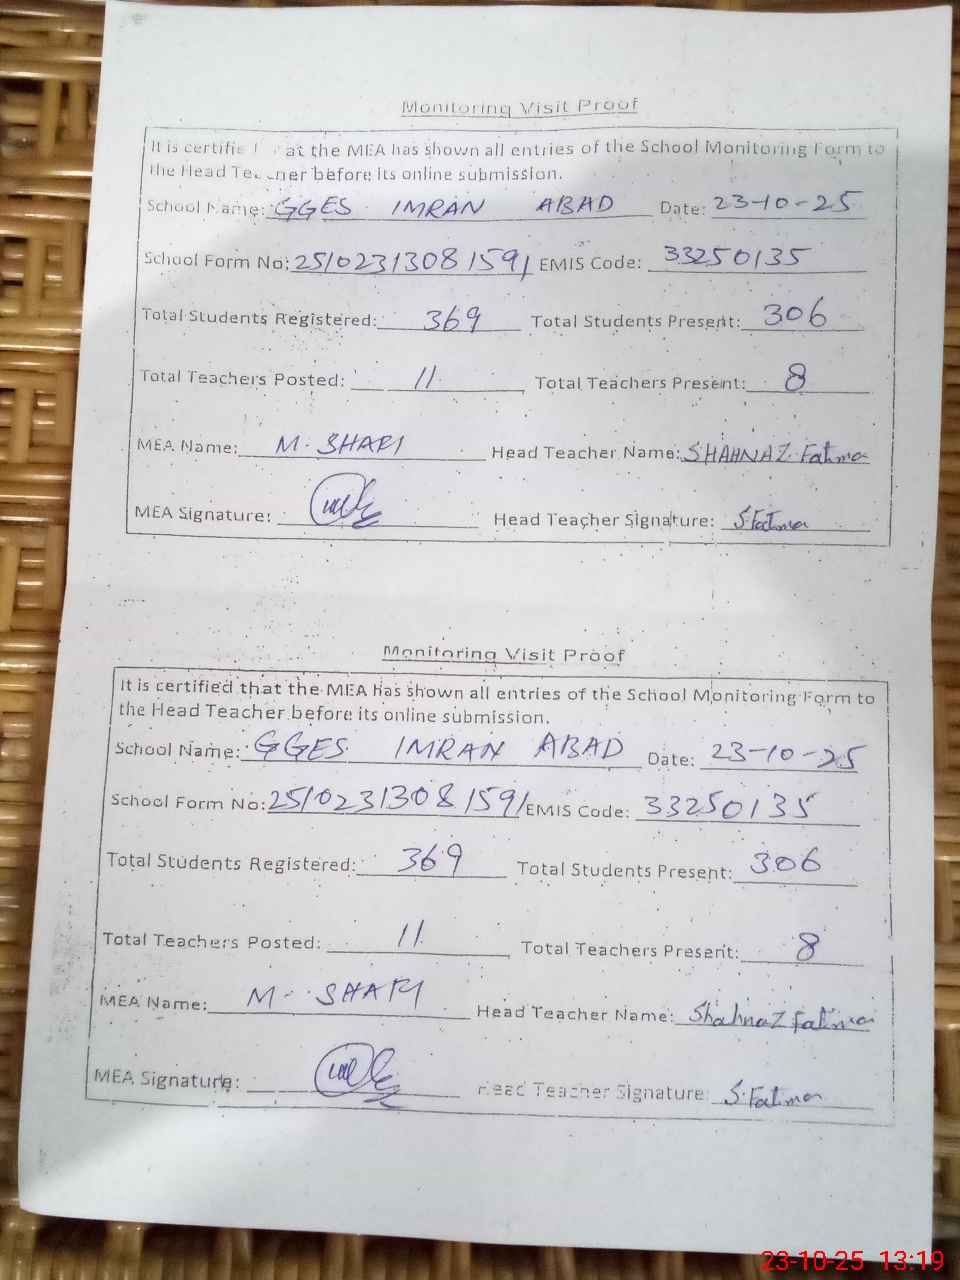 Monitoring Visit Proof
It is certifie at the MEA has shown all entries of the School Monitoring Form to
the Head Teacher before its online submission.
School Name: GGES IMRAN ABAD Date: 23-10-25
School Form No: 25102313081591 EMIS Code: 33250135
Total Students Registered: 369 Total Students Present: 306
Total Teachers Posted: 11 Total Teachers Present: 8
MEA Name: M. SHAFI Head Teacher Name: SHAHNAZ Fatima
MEA Signature: Head Teacher Signature: S.Fatima
Monitoring Visit Proof
It is certified that the MEA has shown all entries of the School Monitoring Form to
the Head Teacher before its online submission.
School Name: GGES IMRAN ABAD Date: 23-10-25
School Form No: 25102313081591 EMIS Code: 33250135
Total Students Registered: 369 Total Students Present: 306
Total Teachers Posted: 11 Total Teachers Present: 8
MEA Name: M. SHAFI Head Teacher Name: Shahnaz Fatima
MEA Signature: Head Teacher Signature: S.Fatima
23-10-25 13:19